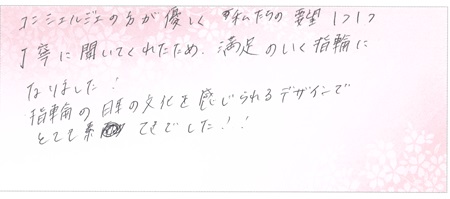 コンシェルジュの方が優しく 私たちの要望1つ1つ
丁寧に聞いてくれたため、満足のいく指輪に
なりました！
指輪の日本の文化を感じられるデザインで
とても素 てきでした！！